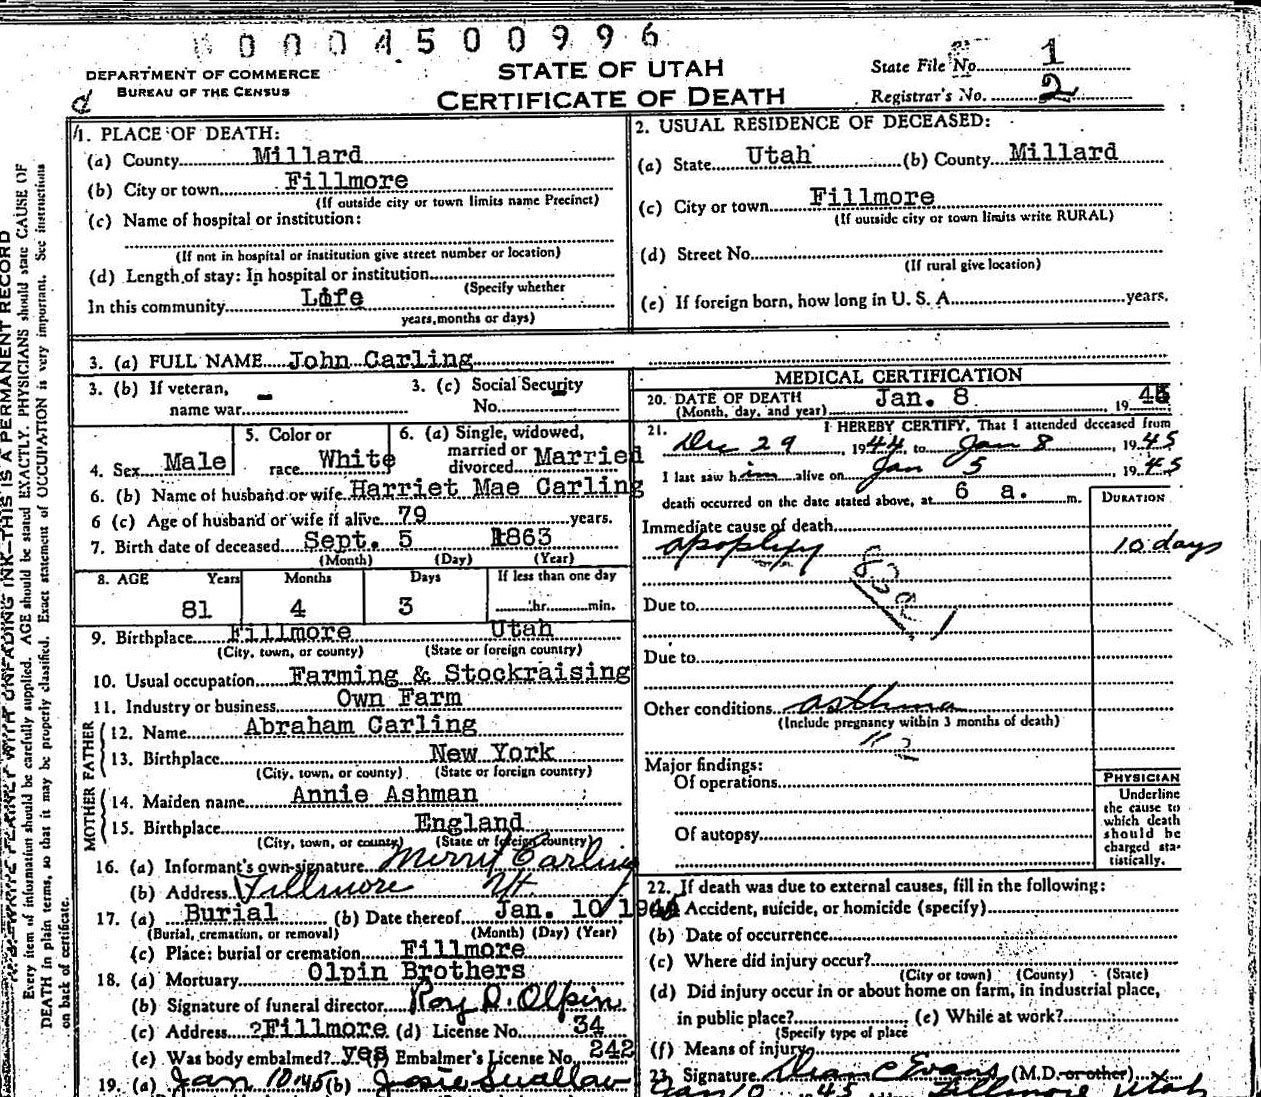 0004500996
DEPARTMENT OF COMMERCE
BUREAU OF THE CENSUS
STATE OF UTAH
CERTIFICATE OF DEATH
State File No. 1
Registrar's No. 2
d
1. PLACE OF DEATH:
(a) County Millard
(b) City or town Fillmore
(If outside city or town limits name Precinct)
(c) Name of hospital or institution:
(If not in hospital or institution give street number or location)
(d) Length of stay: In hospital or institution
(Specify whether
In this community Life
years, months or days)
2. USUAL RESIDENCE OF DECEASED:
(a) State Utah (b) County Millard
(c) City or town Fillmore
(If outside city or town limits write RURAL)
(d) Street No.
(If rural give location)
(e) If foreign born, how long in U. S. A. years.
3. (a) FULL NAME John Carling
3. (b) If veteran, name war - 3. (c) Social Security No. -
4. Sex Male 5. Color or race White 6. (a) Single, widowed, married or divorced Married
6. (b) Name of husband or wife Harriet Mae Carling
6 (c) Age of husband or wife if alive 79 years.
7. Birth date of deceased Sept. 5 1863
(Month) (Day) (Year)
8. AGE Years Months Days If less than one day
81 4 3 hr. min.
9. Birthplace Fillmore Utah
(City, town, or county) (State or foreign country)
10. Usual occupation Farming & Stockraising
11. Industry or business Own Farm
FATHER
12. Name Abraham Carling
13. Birthplace New York
(City, town, or county) (State or foreign country)
MOTHER
14. Maiden name Annie Ashman
15. Birthplace England
(City, town, or county) (State or foreign country)
16. (a) Informant's own signature Merry Carling
(b) Address Fillmore Ut
17. (a) Burial (b) Date thereof Jan. 10/194
(Burial, cremation, or removal) (Month) (Day) (Year)
(c) Place: burial or cremation Fillmore
18. (a) Mortuary Olpin Brothers
(b) Signature of funeral director Roy D. Olpin
(c) Address ?Fillmore (d) License No. 34
(e) Was body embalmed? yes (f) Embalmer's License No. 242
19. (a) Jan 10 45 (b) Josie Swallow
MEDICAL CERTIFICATION
20. DATE OF DEATH Jan. 8 19 45
(Month, day, and year)
21. I HEREBY CERTIFY, That I attended deceased from
Dec 29, 1944, to Jan 8, 1945
I last saw him alive on Jan 5, 1945
death occurred on the date stated above, at 6 a. m.
DURATION
Immediate cause of death
apoplexy 10 days
Due to
Due to
Other conditions asthma
(Include pregnancy within 3 months of death)
Major findings:
Of operations
Of autopsy
PHYSICIAN
Underline
the cause to
which death
should be
charged sta-
tistically.
22. If death was due to external causes, fill in the following:
Accident, suicide, or homicide (specify)
(b) Date of occurrence
(c) Where did injury occur?
(City or town) (County) (State)
(d) Did injury occur in or about home on farm, in industrial place,
in public place? (e) While at work?
(Specify type of place
(f) Means of injury
23. Signature Dean C Evans (M.D. or other)
Jan 10 1945 Address Fillmore Utah
THIS IS A PERMANENT RECORD
Every item of information should be carefully supplied. AGE should be stated EXACTLY. PHYSICIANS should state CAUSE OF
DEATH in plain terms, so that it may be properly classified. Exact statement of OCCUPATION is very important. See instructions
on back of certificate.